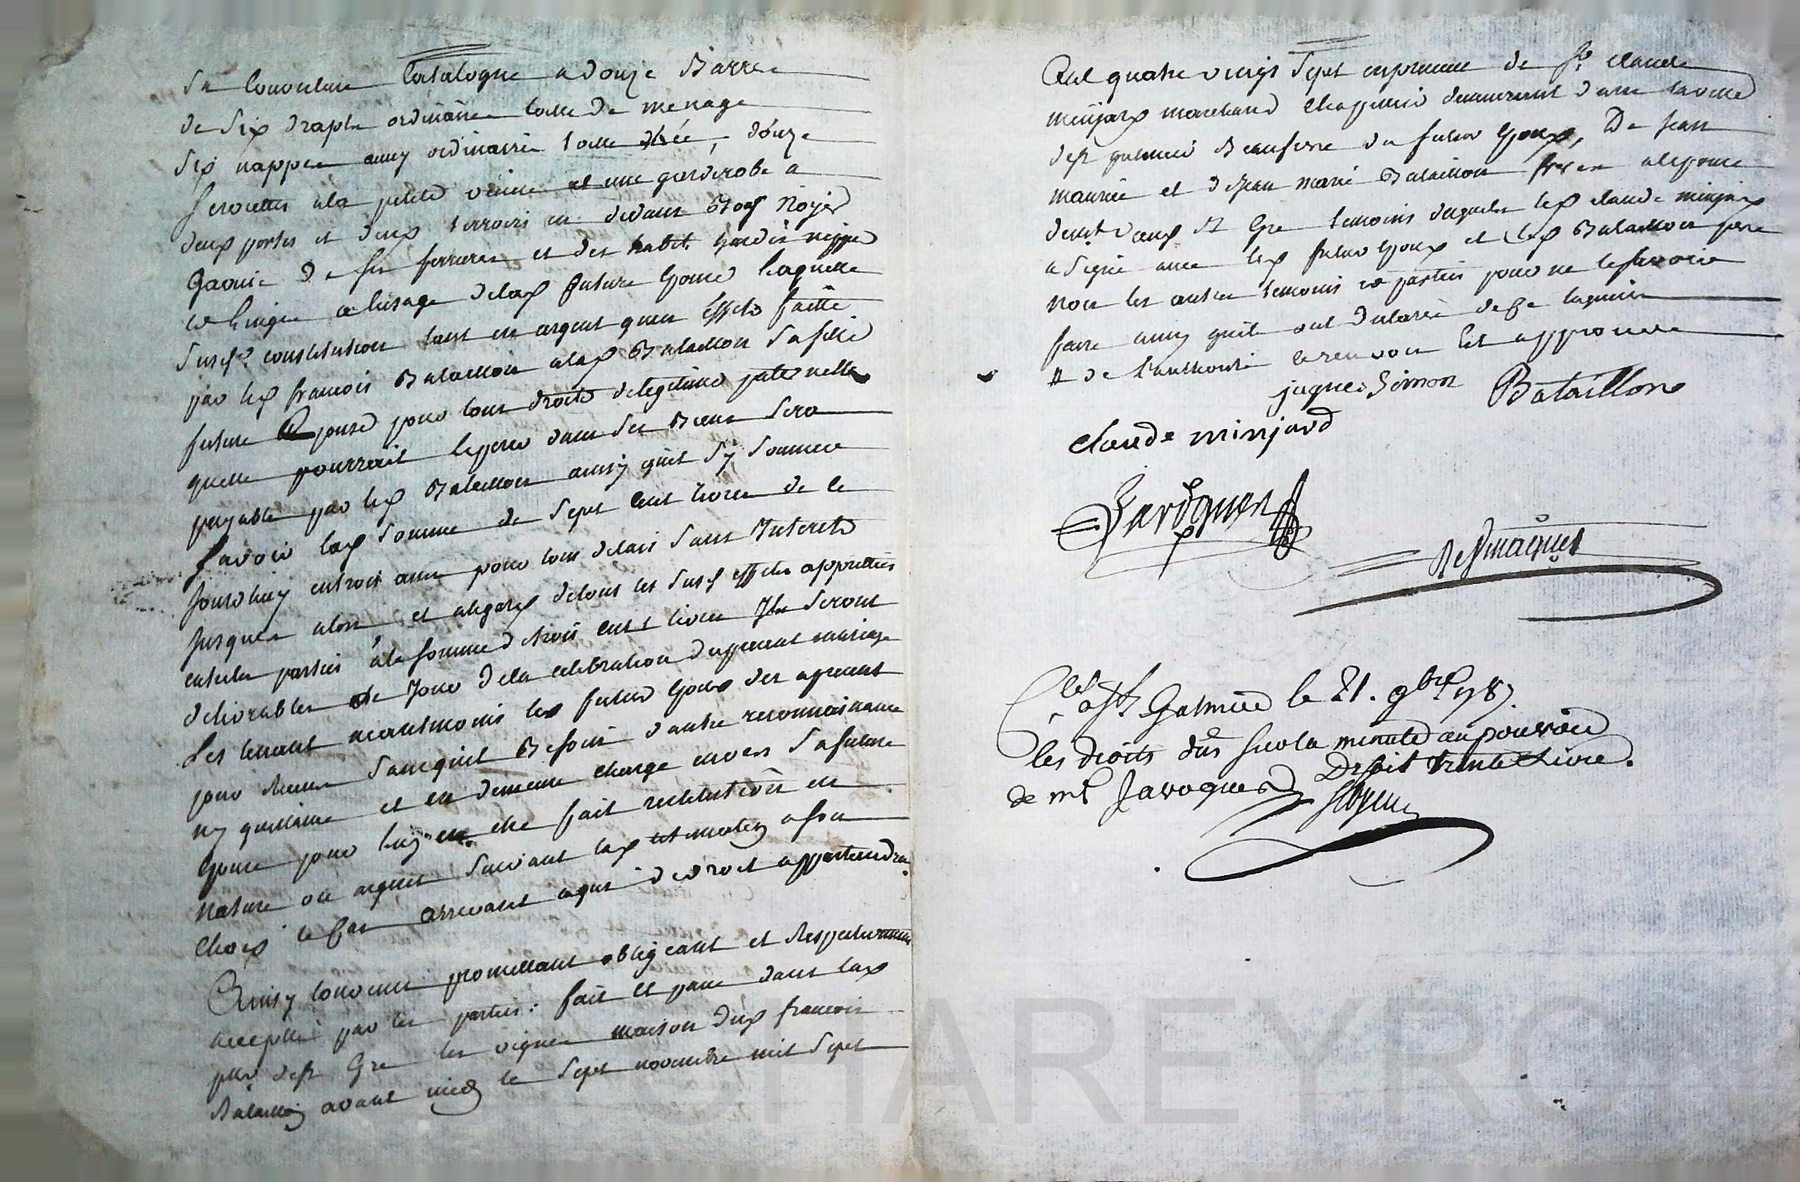 Sa Couverture Catalogne a douze Barres
de Six draps ordinaire toille de menage
Six nappes aussy ordinaire toille, douze
Serviettes a la petite venise et une garderobe a
deux portes et deux tirroirs en devant Bois Noyer
Garnie de Ses ferrures et des habits
et linges a l'usage de lad future Epouse laquelle
Susd constitution tant en argent qu'en Effets faitte
par led francois Bataillon a lad Bataillon Sa fille
future Epouse pour tous droits de legitime paternelle
quelle pourrait esperer dans Ses Biens Sera
payable par led Bataillon ainsy qu'il S'y Soumet
Savoir lad Somme de Sept cent livres de ce
jourdhuy en trois ans pour tous delais Sans Interets
jusques alors et a legard de tous les Susd effets apprétiés
entre les parties a la Somme de trois cent livres Ils Seront
delivrables le Jour de la celebration du present mariage
Les tenant neantmoins led futur Epoux des a present
pour Reçus Sans quil Besoin d'autre reconnoissance
ny quittance et en demeure charge envers Sa future
Epouse pour luy en etre fait restitution en
Nature ou argent Suivant lad a Son
choix le Cas arrivant a qui de droit appartiendra.
Ainsy Convenu promettant obligeant et Respectivement
accepté par les parties: fait et passé dans lad
psse de St Gre les vignes maison dud francois
Bataillon avant midy le Sept novembre mil Sept
Cent quatre vingt Sept en presence de Sr Claude
minjard marchand Chapellier demeurant dans la ville
de St galmier du futur Epoux, De Jean
maurice et de Jean marie Bataillon freres a lepouse
deux St Gre temoins desquels led claude minjard
a Signé avec led futur Epoux et led Bataillon pere
Non les autres temoins et parties pour ne le Savoir
faire ainsy quils ont declaré de Ce requis
# de l'authorité renvoi Est approuvé
jaques Simon Bataillon
claude minjard
Javogues
Desmaques
Clé a St Galmier le 21. 9bre 1787.
les droits dûs Sur la minute au pouvoir
de me Javogues Reçu trente livre.